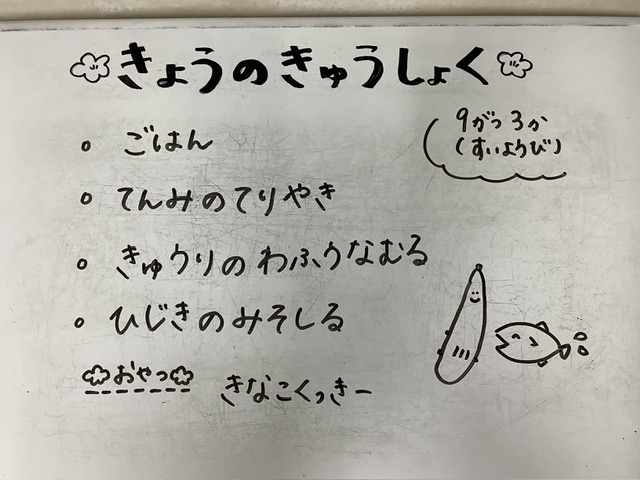 きょうのきゅうしょく
9がつ3か
(すいようび)
ごはん
てんみのてりやき
きゅうりのわふうなむる
ひじきのみそしる
おやつ
きなこくっきー